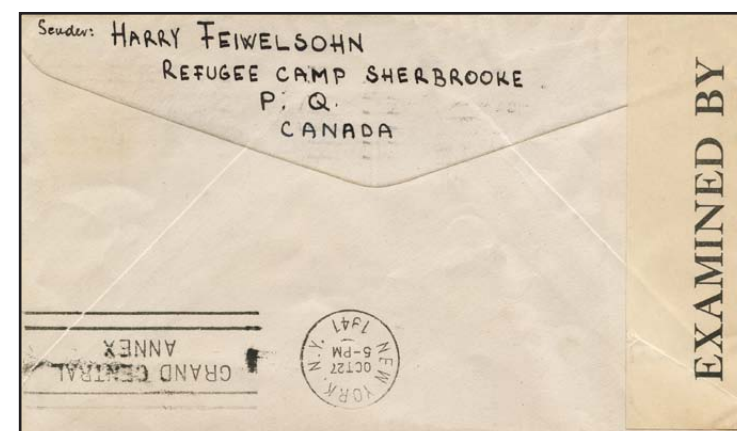 Sender: HARRY FEIWELSOHN
REFUGEE CAMP SHERBROOKE
P. Q.
CANADA
EXAMINED BY
GRAND CENTRAL
ANNEX
NEW YORK, N.Y.
OCT 27
5-PM
1941